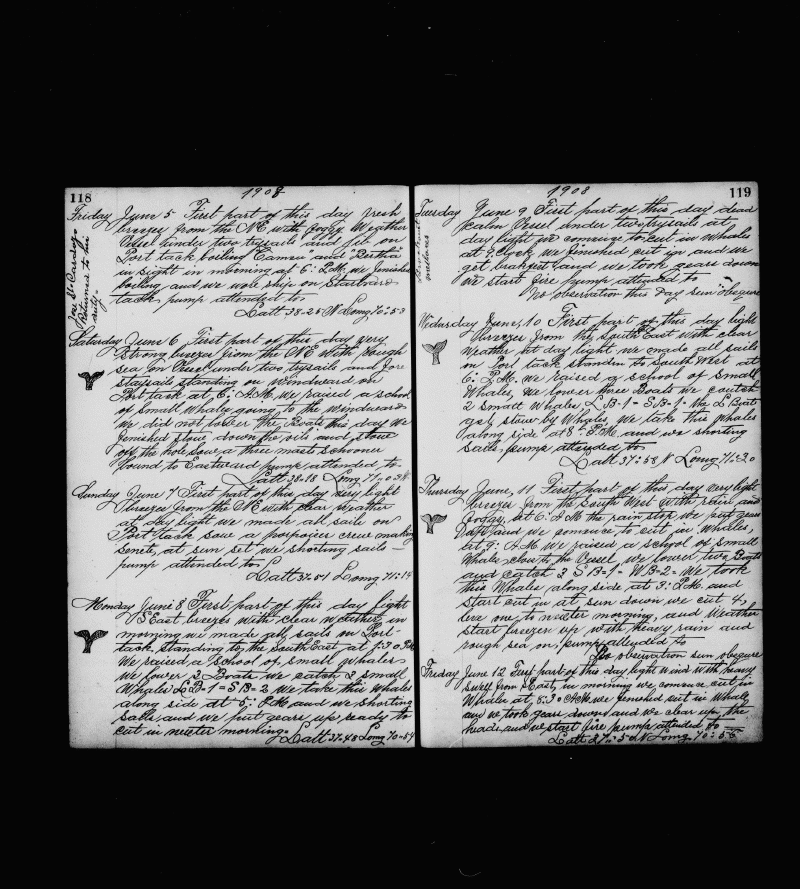 118
1908
Friday June 5 First part of this day fresh
breezes from the NE with foggy Weather
Vessel under two trysails and jib on
Port tack boiling Canm and "Bertha"
in sight in morning at 6: P.M. we finished
boiling and we wore ship on Starboard
tack pump attended to
Latt 38-25 N Long 70:53
Returned to the
Saturday June 6 First part of this day very
Strong breezes from the NE with rough
sea on Vessel under two trysails and fore
staysail standing on Windward on
Port tack at 6: A.M. we raised a school
of small Whales going to the windward
we did not lower the Boats this day we
finished stow down the oil and stow
off the hole saw a three mastt schooner
bound to Eastward pump attended to
Latt 38-18 Long 71-0
Sunday June 7 First part of this day very light
breezes from the NE with clear weather
at day light we made all sails on
Port tack saw a porpoises crew making
senett, at sun set we shorting sails
pump attended to
Latt 37:51 Long 71:14
Monday June 8 First part of this day light
S East breezes with clear weather, in
morning we made all sails on Port
tack standing to the South East at 1:30 P.M.
We raised a school of small whales
We lower 3 Boats we catch 2 small
Whales L B-1 = S B-2 We take this Whales
along side at 5: P.M and we shorting
sails and we put gears up ready to
cut in nexter morning.
Latt 37:48 Long 70-54
119
1908
Tuesday June 9 First part of this day dead
calm Vessel under two trysails at
day light we comence to cut in Whales
at 9: Clock we finished cut in and we
get brakfest and we took gears down
we start fire pump attended to
No observation this Day sun obsqure
Wednsday June, 10 First part of this day light
breezes from the South East with clear
Weather at day light we made all sails
on Port tack standen to South West at
6: P.M. we raised a school of small
Whales, we lower three Boats we coutch
2 small Whales, L B-1- S B-1- the L Boat
get stove by Whales, We take this Whales
along side at 8: P.M. and we shorting
sails pump attended to
Latt 37:58 N Long 71:20
Thursday June, 11, First part of this day very light
breezes from the South West with rain and
foggy, at 6: A.M the rain stop we put gears
up and we comence to cut in Whales,
at 9: A.M we raised a school of small
Whales close to the Vessel we lowred two Boats
and catch 3 S B-1- W B-2- We took
this Whales along side at 3: P.M. and
start cut in at sun down we cut 4,
leve one to nexter morning, and Weather
start breezen up with heavy rain and
rough sea on, pump attended to
No observation sun obsqure
Friday June 12 First part of this day light wind with many
swell from East, in morning we comence cut in
Whales at, 5:30 A.M. we fenished cut in Whales
and we took gears down and we clear up the
heads and we start fire pump attended to
Latt 37:50 N Long 70:55